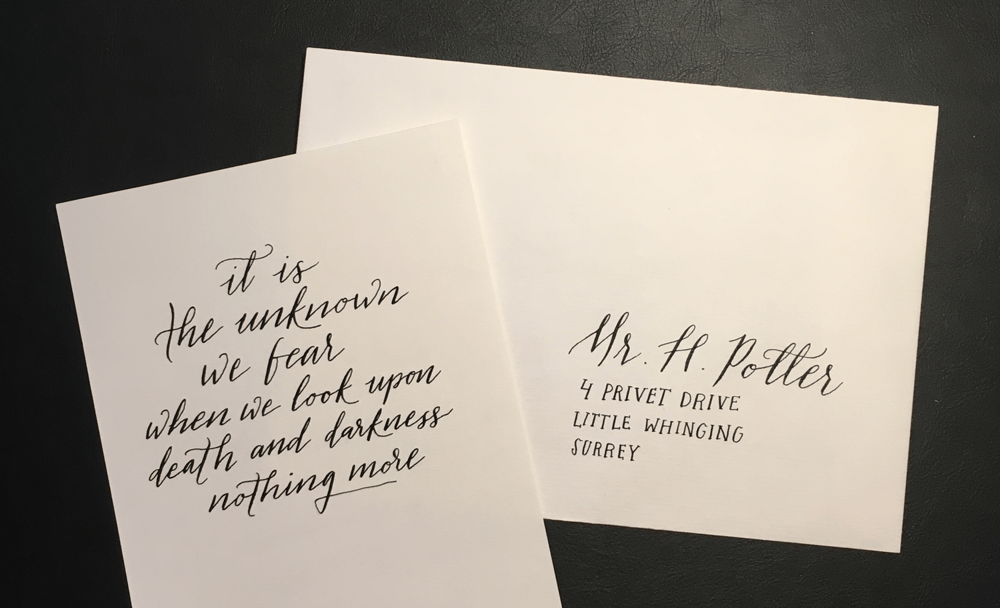 it is
the unknown
we fear
when we look upon
death and darkness
nothing more
Mr. H. Potter
4 PRIVET DRIVE
LITTLE WHINGING
SURREY